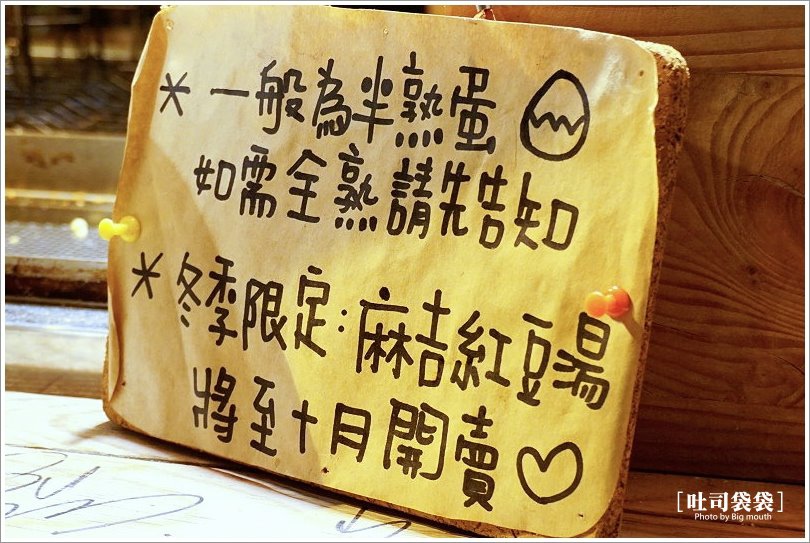 * 一般為半熟蛋
如需全熟請先告知
* 冬季限定:麻吉紅豆湯
將至十月開賣♡
[吐司袋袋]
Photo by Big mouth